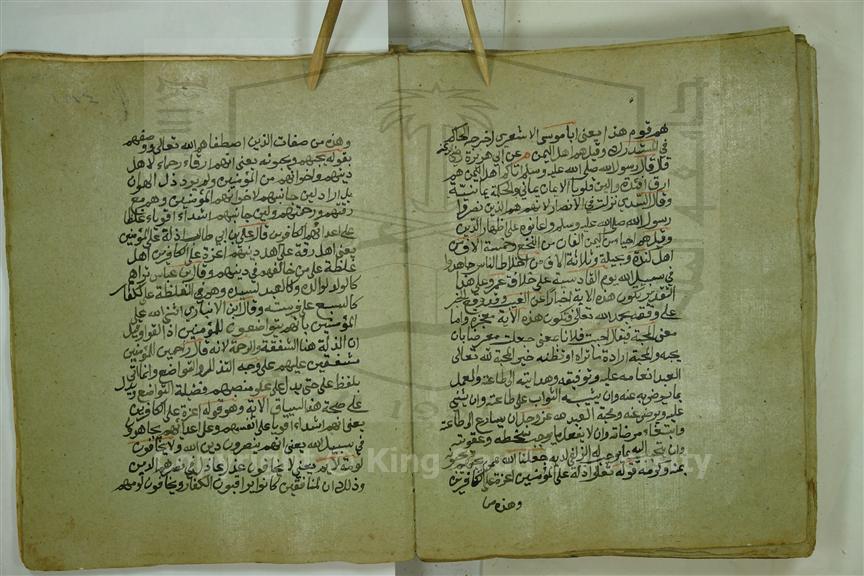 هم قوم هذا يعنى ابا موسى الاشعرى اخرجه الحاكم
فى المستدرك وقيل هم اهل اليمن عن ابى هريرة
قال قال رسول الله صلى الله عليه وسلم اتاكم اهل اليمن هم
ارق افئدة والين قلوبا الايمان يمانى والحكمة يمانية
وقال السدى نزلت فى الانصار لانهم هم الذين نصروا
رسول الله صلى الله عليه وسلم واعانوه على اظهار الدين
وقيل هم احياء من اليمن الفان من النخع وخمسة الاف من
اهل كندة وبجيلة وثلاثة الاف من اخلاط الناس جاهدوا
فى سبيل الله يوم القادسية فى خلافة عمر وعلى هذا
التقدير تكون هذه الاية اخبارا عن الغيب وقد وقع الخبر
على وفقه بحمد الله تعالى وتكون هذه الاية معجزة واما
معنى المحبة فيقال احببت فلانا بمعنى جعلت معرضا بان
يحبه والمحبة ارادة ما تراه او تظنه خيرا ومحبة الله تعالى
العبد انعامه عليه وتوفيقه وهدايته الى طاعته والعمل
بما يرضى به عنه وان يثيبه الثواب على طاعته وان يثنى
عليه ويرضى عنه ومحبة العبد لله عز وجل ان يسارع الى طاعته
وابتغاء مرضاته وان لا يفعل ما يوجب سخطه وعقوبته
وان يتحبب اليه بما يوجب له الزلفى لديه جعلنا الله ممن
بمنه وكرمه قوله تعالى اذلة على المؤمنين اعزة على الكافرين
وهذه من
وهذه من صفات الذين اصطفاهم الله تعالى ووصفهم
بقوله يحبهم ويحبونه يعنى انهم ارقاء رحماء لاهل
دينهم واخوانهم من المؤمنين ولم يرد ذل الهوان
بل اراد لين جانبهم لاخوانهم المؤمنين وهم مع
رقتهم ورحمتهم ولين جانبهم اشداء اقوياء غلظاء
على اعدائهم الكافرين قال على بن ابى طالب اذلة على المؤمنين
يعنى اهل رقة على اهل دينهم اعزة على الكافرين اهل
غلظة على من خالفهم فى دينهم وقال ابن عباس تراهم
كالولد لوالده وكالعبد لسيده وهم فى الغلظة على الكفار
كالسبع على فريسته وقال ابن الانبارى اثنى الله على
المؤمنين بانهم يتواضعون للمؤمنين اذا لقوا وقيل
ان الذلة هنا الشفقة والرحمة لانه قال راحمين للمؤمنين
مشفقين عليهم على وجه التذلل والتواضع وانما اتى
بلفظ على حتى يدل على علو منصبهم وفضيلة التواضع ويدل
على صحة هذا سياق الاية وهو قوله اعزة على الكافرين
يعنى انهم اشداء اقوياء على انفسهم وعلى اعدائهم يجاهدون
فى سبيل الله يعنى انهم ينصرون دين الله ولا يخافون
لومة لائم يعنى لا يخافون عذل عاذل فى نصرهم الدين
وذلك ان المنافقين كانوا يراقبون الكفار ويخافون لومهم
King